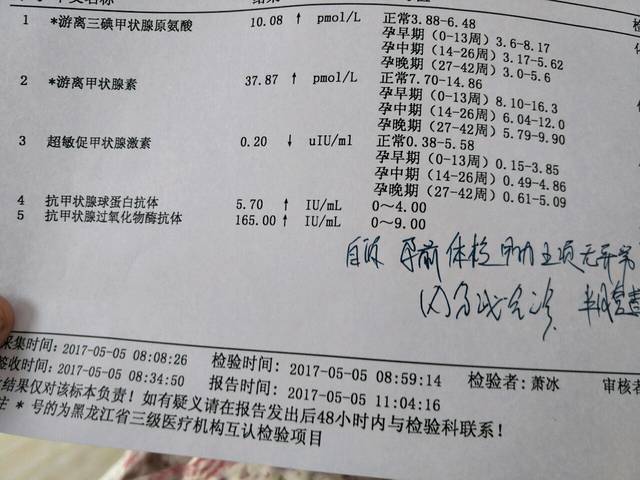 1 *游离三碘甲状腺原氨酸 10.08 ↑ pmol/L 正常3.88-6.48
孕早期(0-13周)3.6-8.17
孕中期(14-26周)3.17-5.62
孕晚期(27-42周)3.0-5.6
2 *游离甲状腺素 37.87 ↑ pmol/L 正常7.70-14.86
孕早期(0-13周)8.10-16.3
孕中期(14-26周)6.04-12.0
孕晚期(27-42周)5.79-9.90
3 超敏促甲状腺激素 0.20 ↓ uIU/ml 正常0.38-5.58
孕早期(0-13周)0.15-3.85
孕中期(14-26周)0.49-4.86
孕晚期(27-42周)0.61-5.09
4 抗甲状腺球蛋白抗体 5.70 ↑ IU/mL 0～4.00
5 抗甲状腺过氧化物酶抗体 165.00 ↑ IU/mL 0～9.00
孕前体检 甲功五项无异常
采集时间:2017-05-05 08:08:26 检验时间:2017-05-05 08:59:14 检验者:萧冰 审核者
签收时间:2017-05-05 08:34:50 报告时间:2017-05-05 11:04:16
结果仅对该标本负责!如有疑义请在报告发出后48小时内与检验科联系!
注 * 号的为黑龙江省三级医疗机构互认检验项目